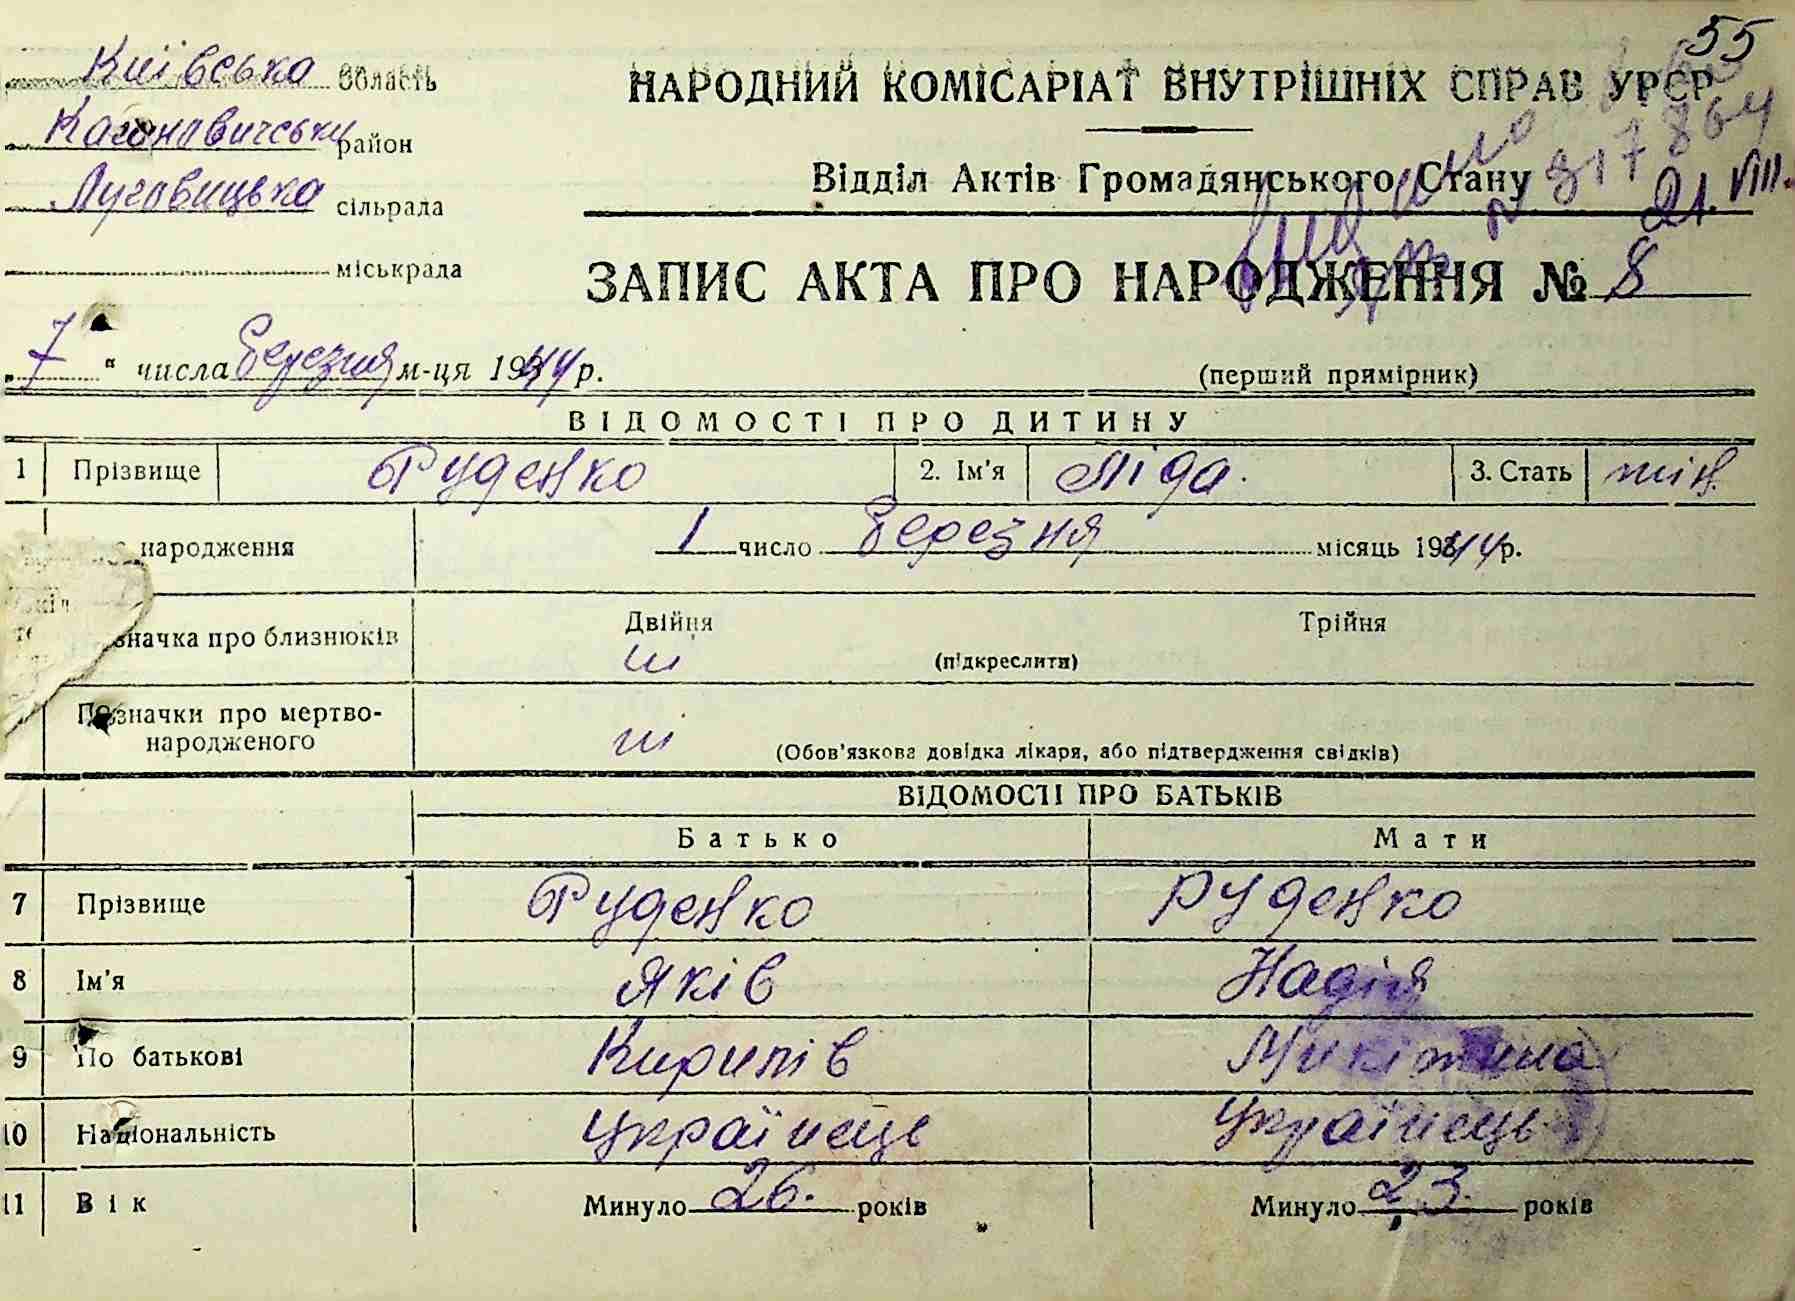 55
Київська область
Кагановичський район
Луговицька сільрада
міськрада
НАРОДНИЙ КОМІСАРІАТ ВНУТРІШНІХ СПРАВ УРСР
Відділ Актів Громадянського Стану
21.VIII.
ЗАПИС АКТА ПРО НАРОДЖЕННЯ № 8
7 " числа Березня м-ця 1944 р.
(перший примірник)
ВІДОМОСТІ ПРО ДИТИНУ
1 Прізвище Руденко 2. Ім'я Ліда. 3. Стать жін.
народження 1 число Березня місяць 1944 р.
значка про близнюків Двійня Трійня
ні (підкреслити)
Позначки про мертво-
народженого ні (Обов'язкова довідка лікаря, або підтвердження свідків)
ВІДОМОСТІ ПРО БАТЬКІВ
Батько Мати
7 Прізвище Руденко Руденко
8 Ім'я Яків Надія
9 По батькові Кирилів Микітина
10 Національність Українець Українець
11 Вік Минуло 26. років Минуло 23. років